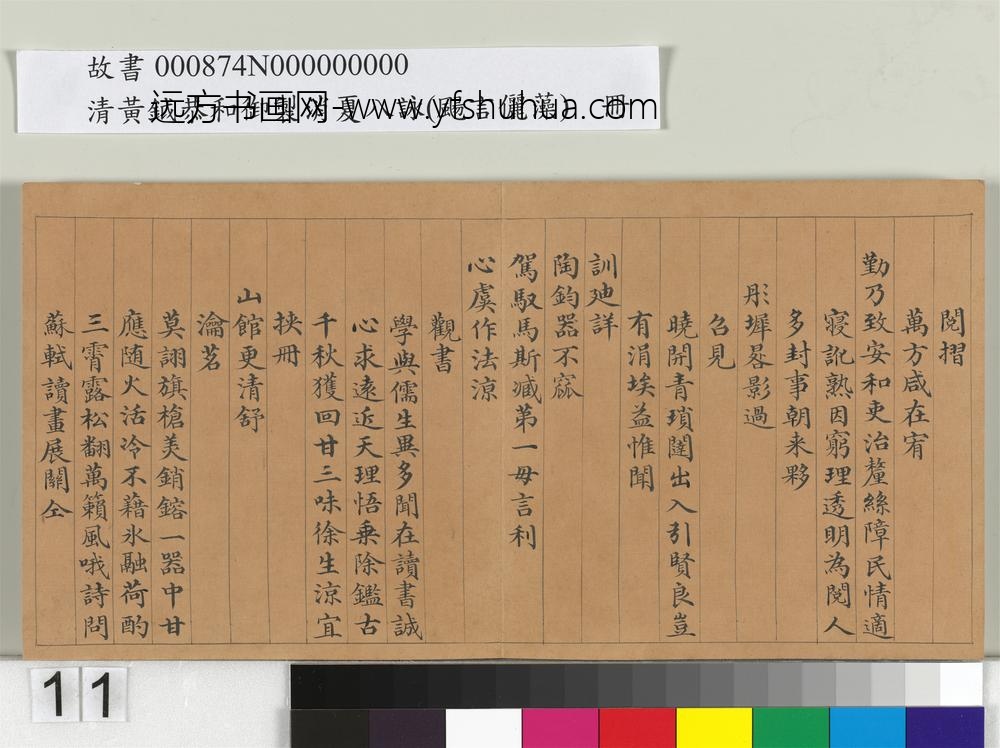 故書 000874N000000000
清黃鉞恭和御製消夏 詠( ) 冊
远方书画网-www.yfshuhua.com
閱摺
萬方咸在宥
勤乃致安和吏治釐絲障民情適
寢訛熟因窮理透明為閱人
多封事朝来夥
彤墀晷影過
召見
曉開青瑣闥出入引賢良豈
有涓埃益惟聞
訓迪詳
陶鈞器不窳
駕馭馬斯臧第一毋言利
心虞作法涼
觀書
學與儒生異多聞在讀書誠
心求遠近天理悟乗除鑑古
千秋獲回甘三味徐生涼宜
挾冊
山館更清舒
瀹茗
莫詡旗槍美銷鎔一器中甘
應随火活冷不藉氷融荷酌
三霄露松翻萬籟風哦詩問
蘇軾讀畫展關仝
11